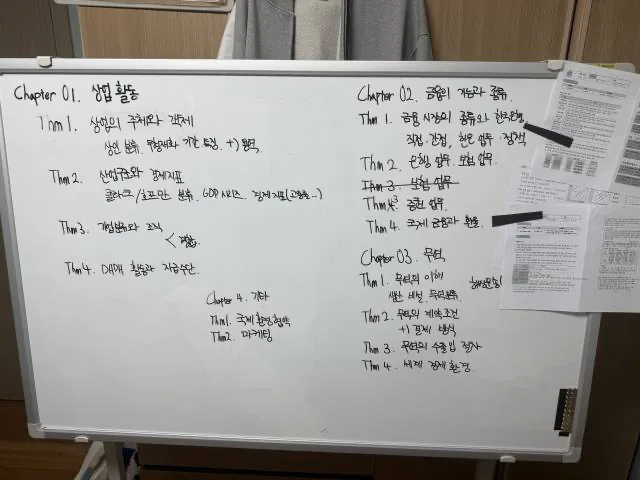 Chapter 01. 상업 활동
Thm 1. 상업의 주체와 객체
상인 분류. 무형재화 기간 특징. +)
Thm 2. 산업구조와 경제지표
클라크/호프만 분류. GDP 시리즈. 경제지표(고용률...)
Thm 3. 기업분류와 조직
Thm 4. 매매 활동과 지급수단.
Chapter 4. 기타
Thm 1. 국제 환경협약
Thm 2. 마케팅
Chapter 02. 금융의 기능과 종류.
Thm 1. 금융 시장의 종류와 한국은행
직접·간접, 한은 업무·정책
Thm 2. 은행 업무. 보험 업무.
Thm 3. 보험 업무
Thm 3. 증권 업무.
Thm 4. 국제 금융과 환율.
Chapter 03. 무역
Thm 1. 무역의 이해
생산 비설. 무역분류.
Thm 2. 무역의 계약조건
+) 결제 방식
Thm 3. 무역의 수출입 절차
Thm 4. 세계 경제 환경.